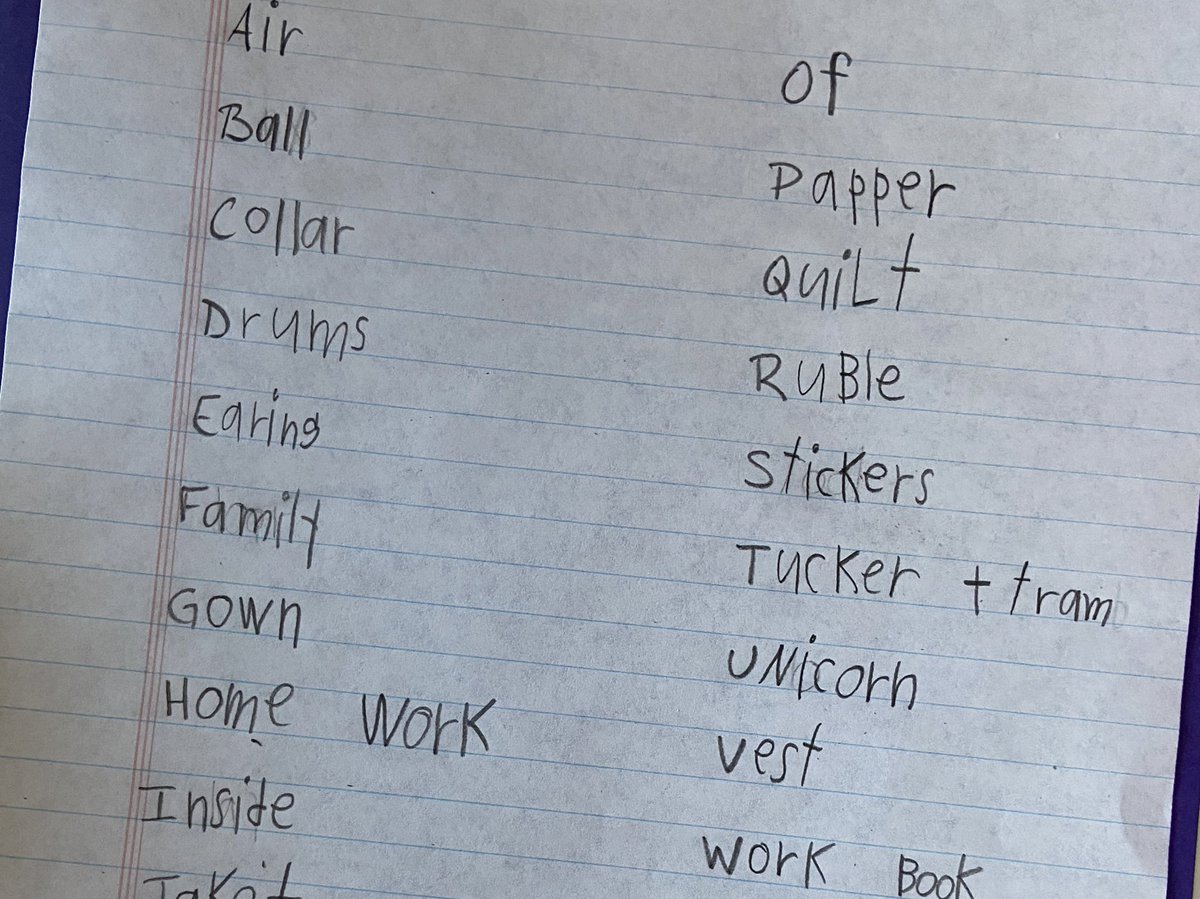 Air
Ball
Collar
Drums
Earing
Family
Gown
Home Work
Inside
Jakit
Of
Papper
QuiLt
RuBle
Stickers
Tucker + tram
UNicorn
Vest
Work Book